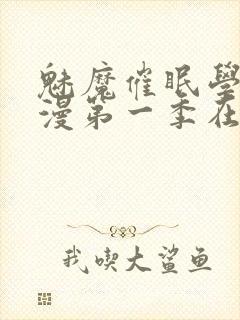 魅魔催眠學
漫第一季在
我喫大鯊鱼